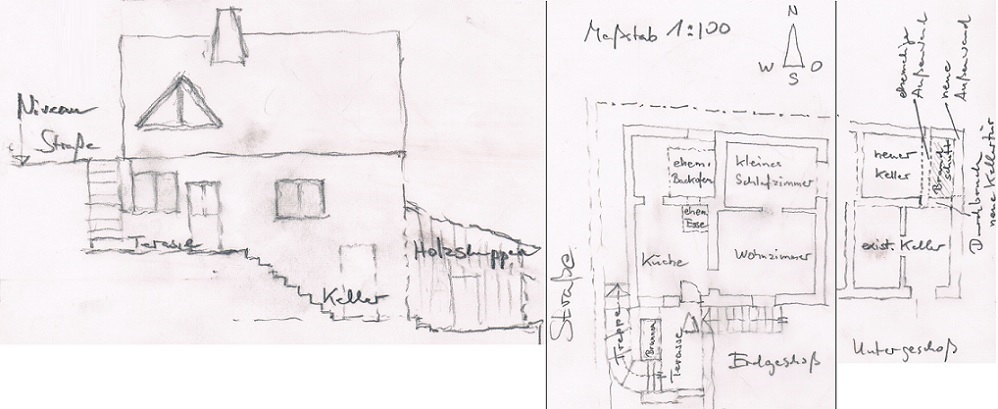 Niveau
Straße
Terasse
Keller
Holzshuppen
Maßstab 1:100
N
W O
S
ehem.
Backofen
kleines
Schlafzimmer
ehem.
Esse
Küche
Wohnzimmer
Straße
Treppe
Brunnen
Terasse
Erdgeshoß
ehemalige
Außenwand
neue
Außenwand
neuer
Keller
Brand
schutt
exist. Keller
Durchbruch
neue Kellertür
Untergeshoß